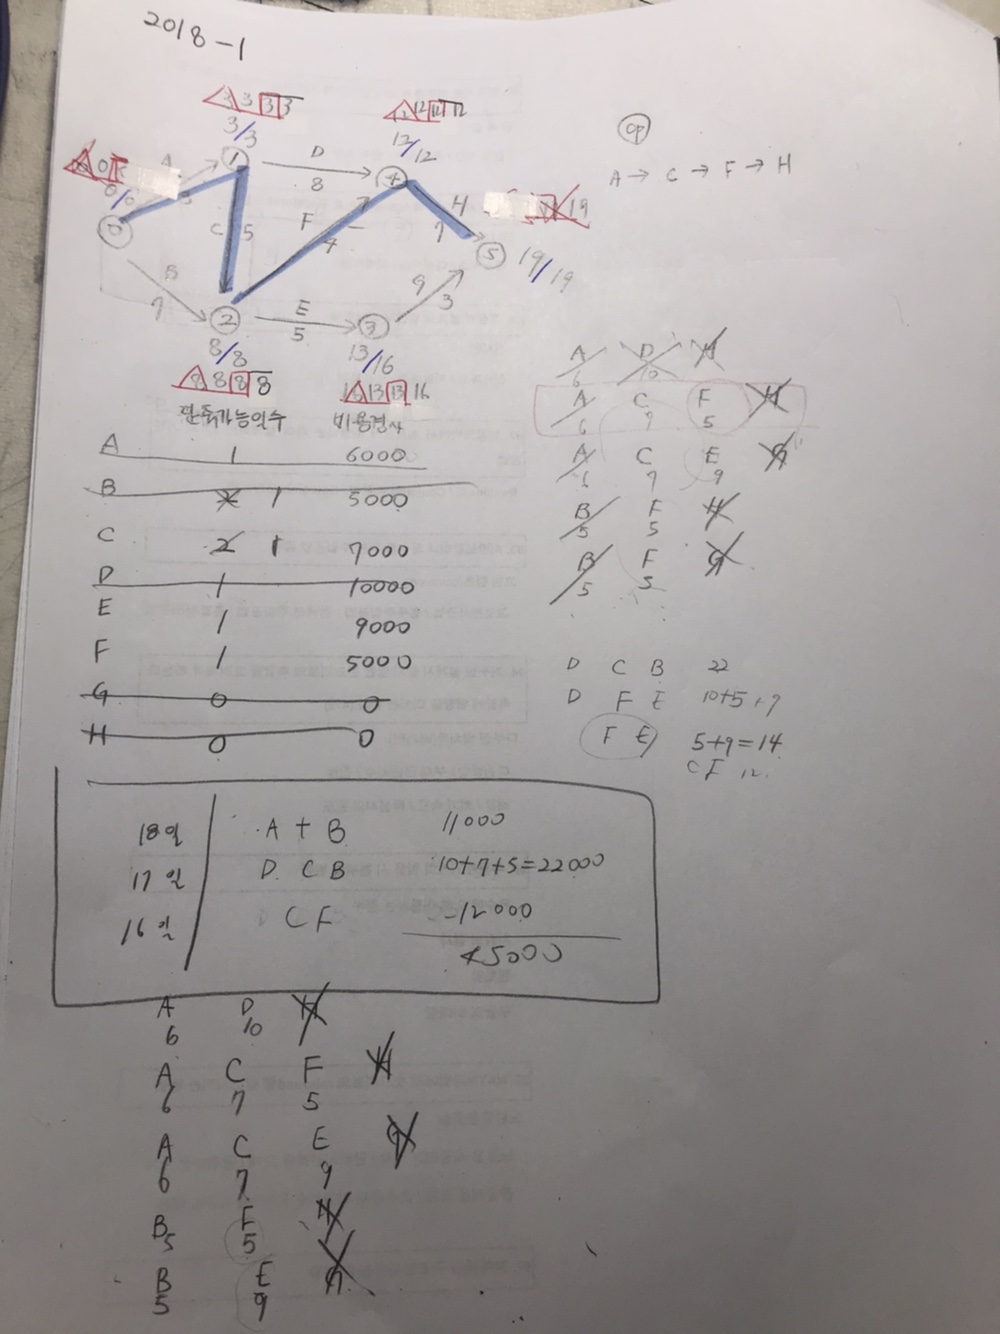 2018-1
3 3 3 3
12 12 12
3/3
12/12
CP
A → C → F → H
A
1
D
8
4
0
F
4
H
7
19
C 5
5
19/19
B
7
2
E
5
3
G
3
8/8
13/16
8 8 8 8
13 13 16
단축가능일수 비용경사
A 1 6000
B 1 5000
C 2 1 7000
D 1 10000
E 1 9000
F 1 5000
G 0 0
H 0 0
A D H
6 10
A C F H
6 7 5
A C E G
6 7 9
B F H
5 5
B F G
5 5
D C B 22
D F E 10+5+9
F E 5+9=14
C F 12
18일 A + B 11000
17일 D. C B 10+7+5=22000
16일 C F 12000
45000
A D H
6 10
A C F H
6 7 5
A C E G
6 7 9
B F H
5 5
B E G
5 9